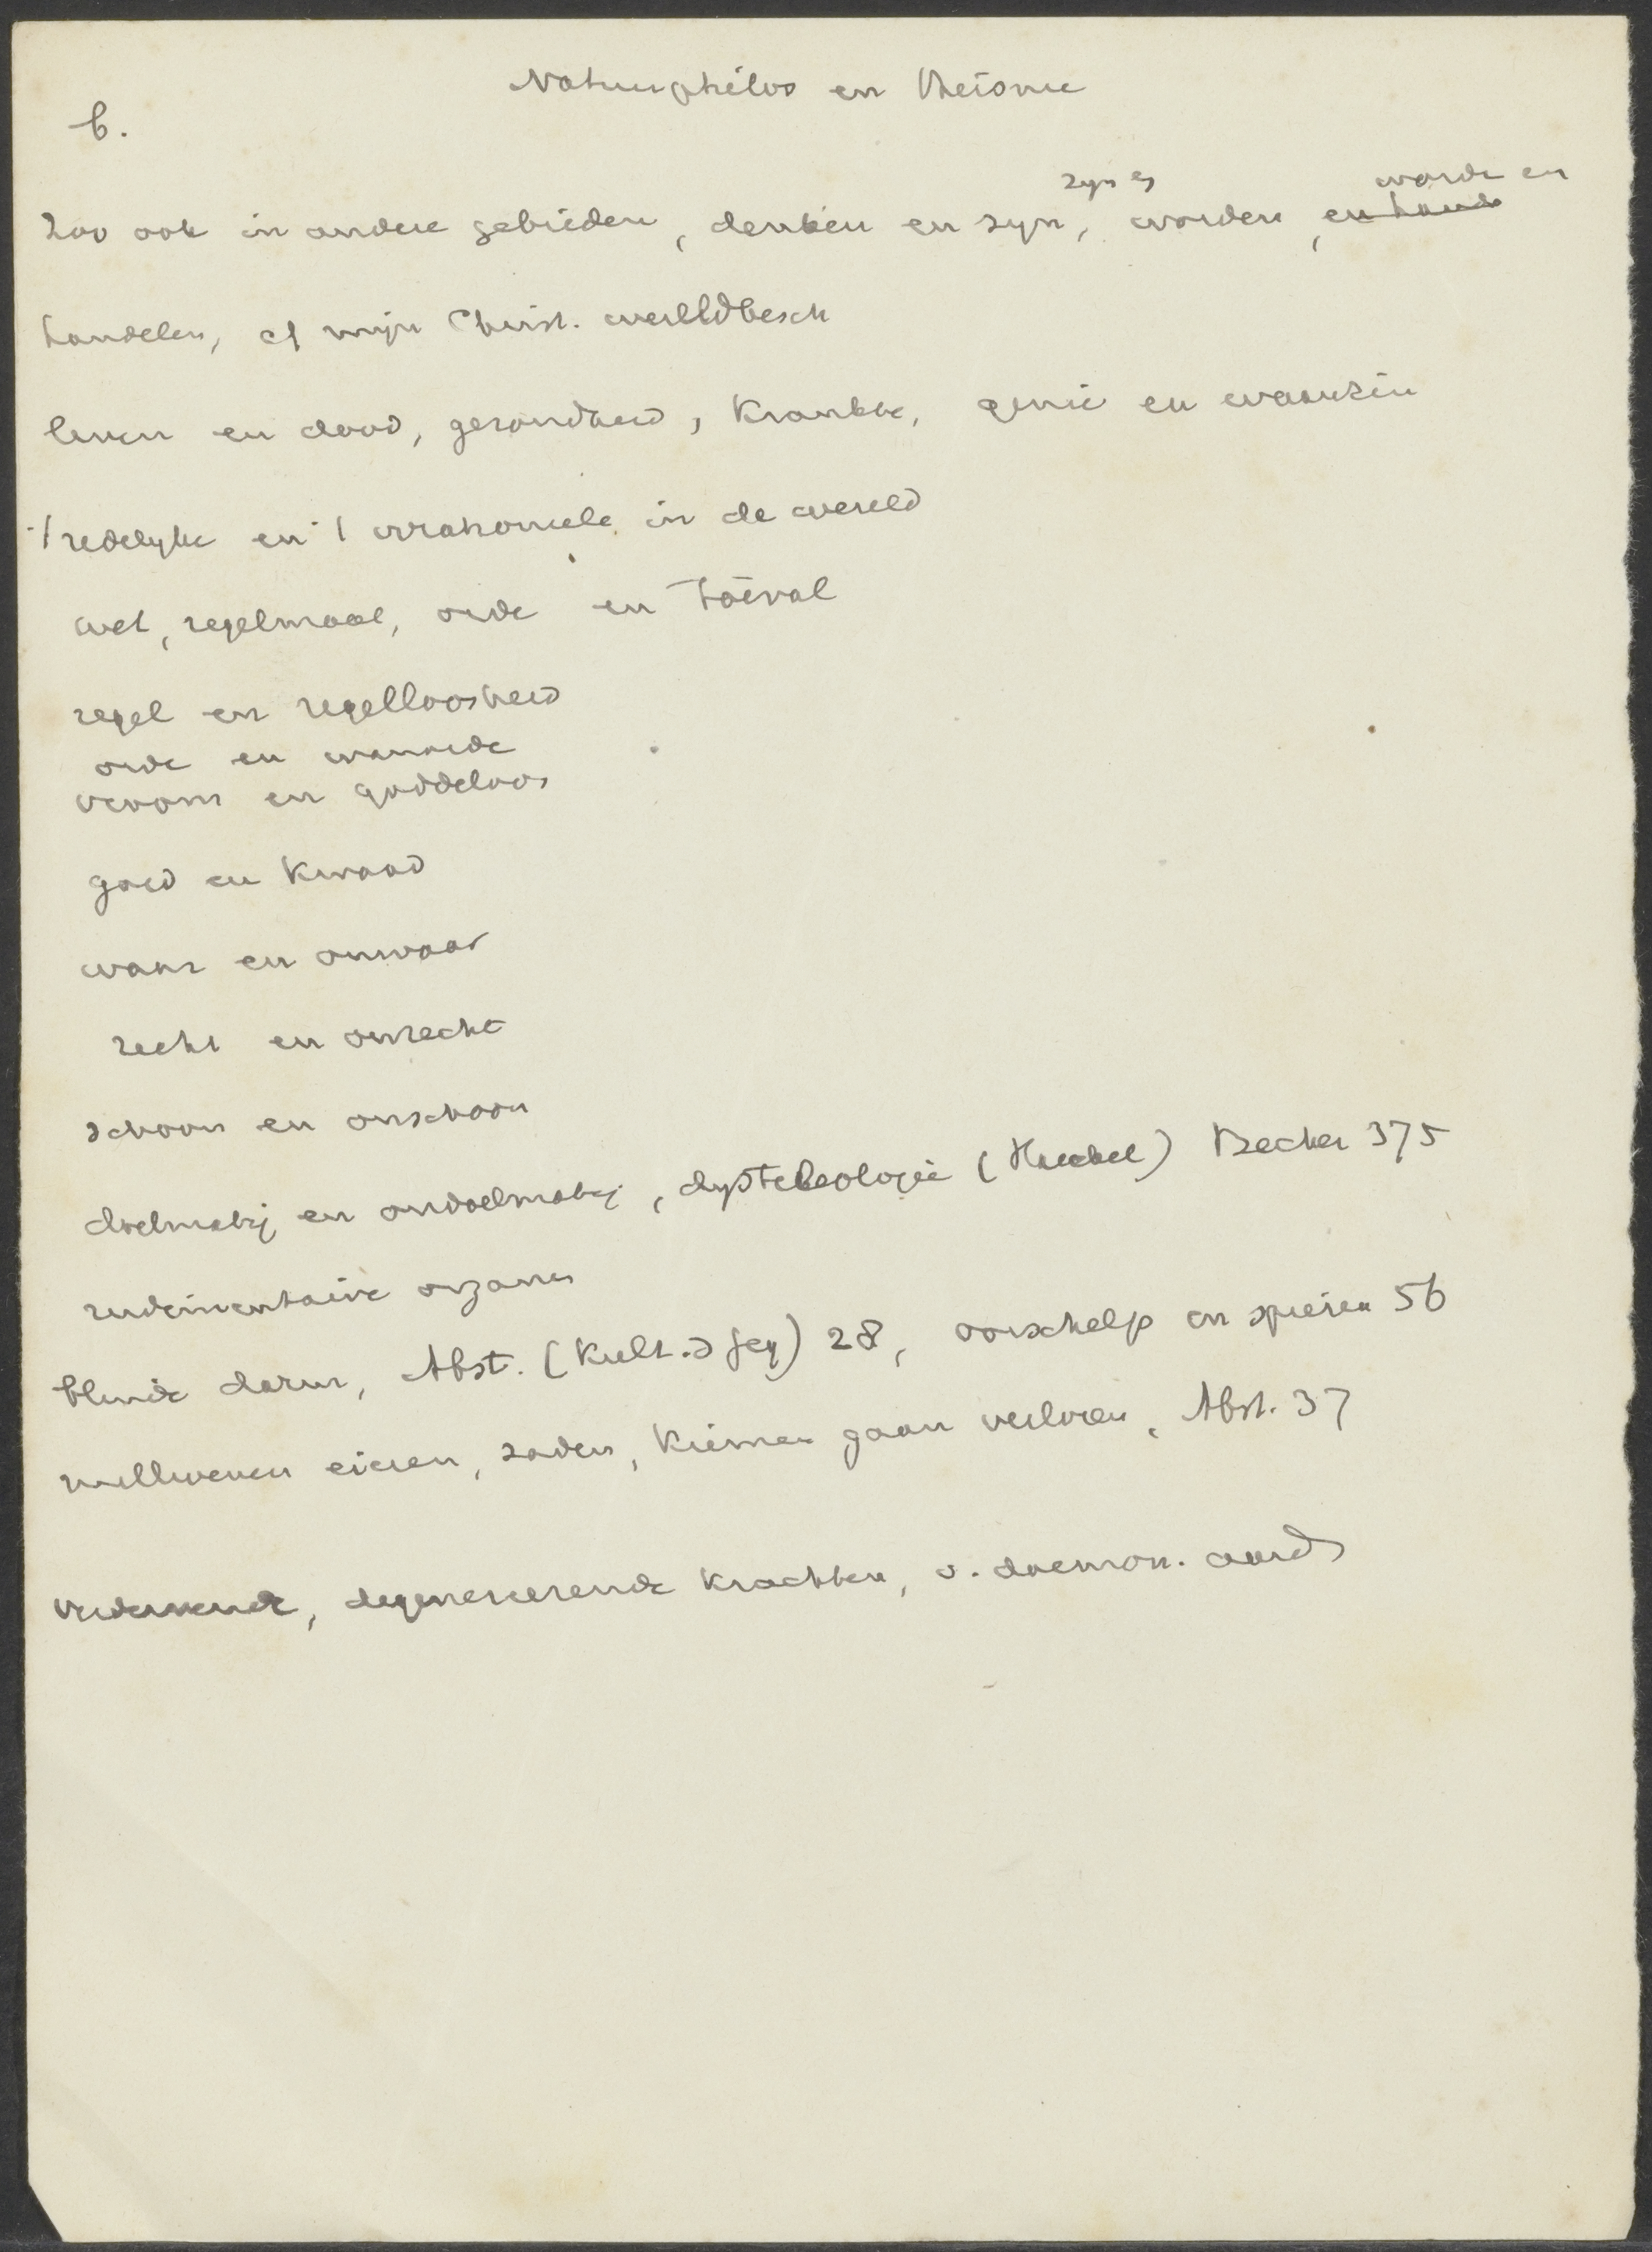 Natuurphilos en Theisme
6.
zyn en worde en
Zoo ook in andere gebieden, denken en zyn, worden, en hande
handelen, cf mijn Christ. wereldbesch
leven en dood, gezondheid, krankhe, genie en waanzin
't redelyke en 't irrationeele in de wereld
wet, regelmaat, orde en toeval
regel en regelloosheid
orde en wanorde
vroom en goddeloos
goed en kwaad
waar en onwaar
recht en onrecht
schoon en onschoon
doelmatig en ondoelmatig, dysteleologie (Haeckel) Becher 375
rudimentaire organen
blinde darm, Abst. (Kult. d Geg) 28, oorschelp en spieren 56
millioenen eieren, zaden, kiemen gaan verloren, Abst. 37
degenereerende krachten, v. daemon. aard